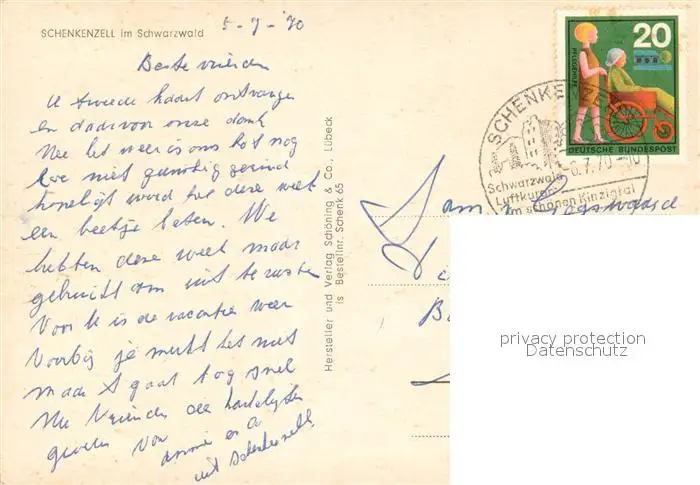 SCHENKENZELL im Schwarzwald
5-7-'70
Beste vrienden
U tweede kaart ontvangen
en daarvoor onze dank
Nee het weer is ons tot nog
toe niet gunstig gezind
hopelijk word het deze week
een beetje beter. We
hebben deze week maar
gebruikt om uit te rusten
Voor U is de vacantie weer
voorbij je merkt het niet
maar t gaat tog snel
Nu Vrienden de hartelijkste
groeten van
en
uit Schenkenzell
Hersteller und Verlag Schöning & Co., Lübeck
is Bestellnr. Schenk 65
20
PFLEGEHILFE
DEUTSCHE BUNDESPOST
SCHENKENZELL
-6.7.70-10
Schwarzwald
Luftkurort
im schönen Kinzigtal
Fam.
privacy protection
Datenschutz